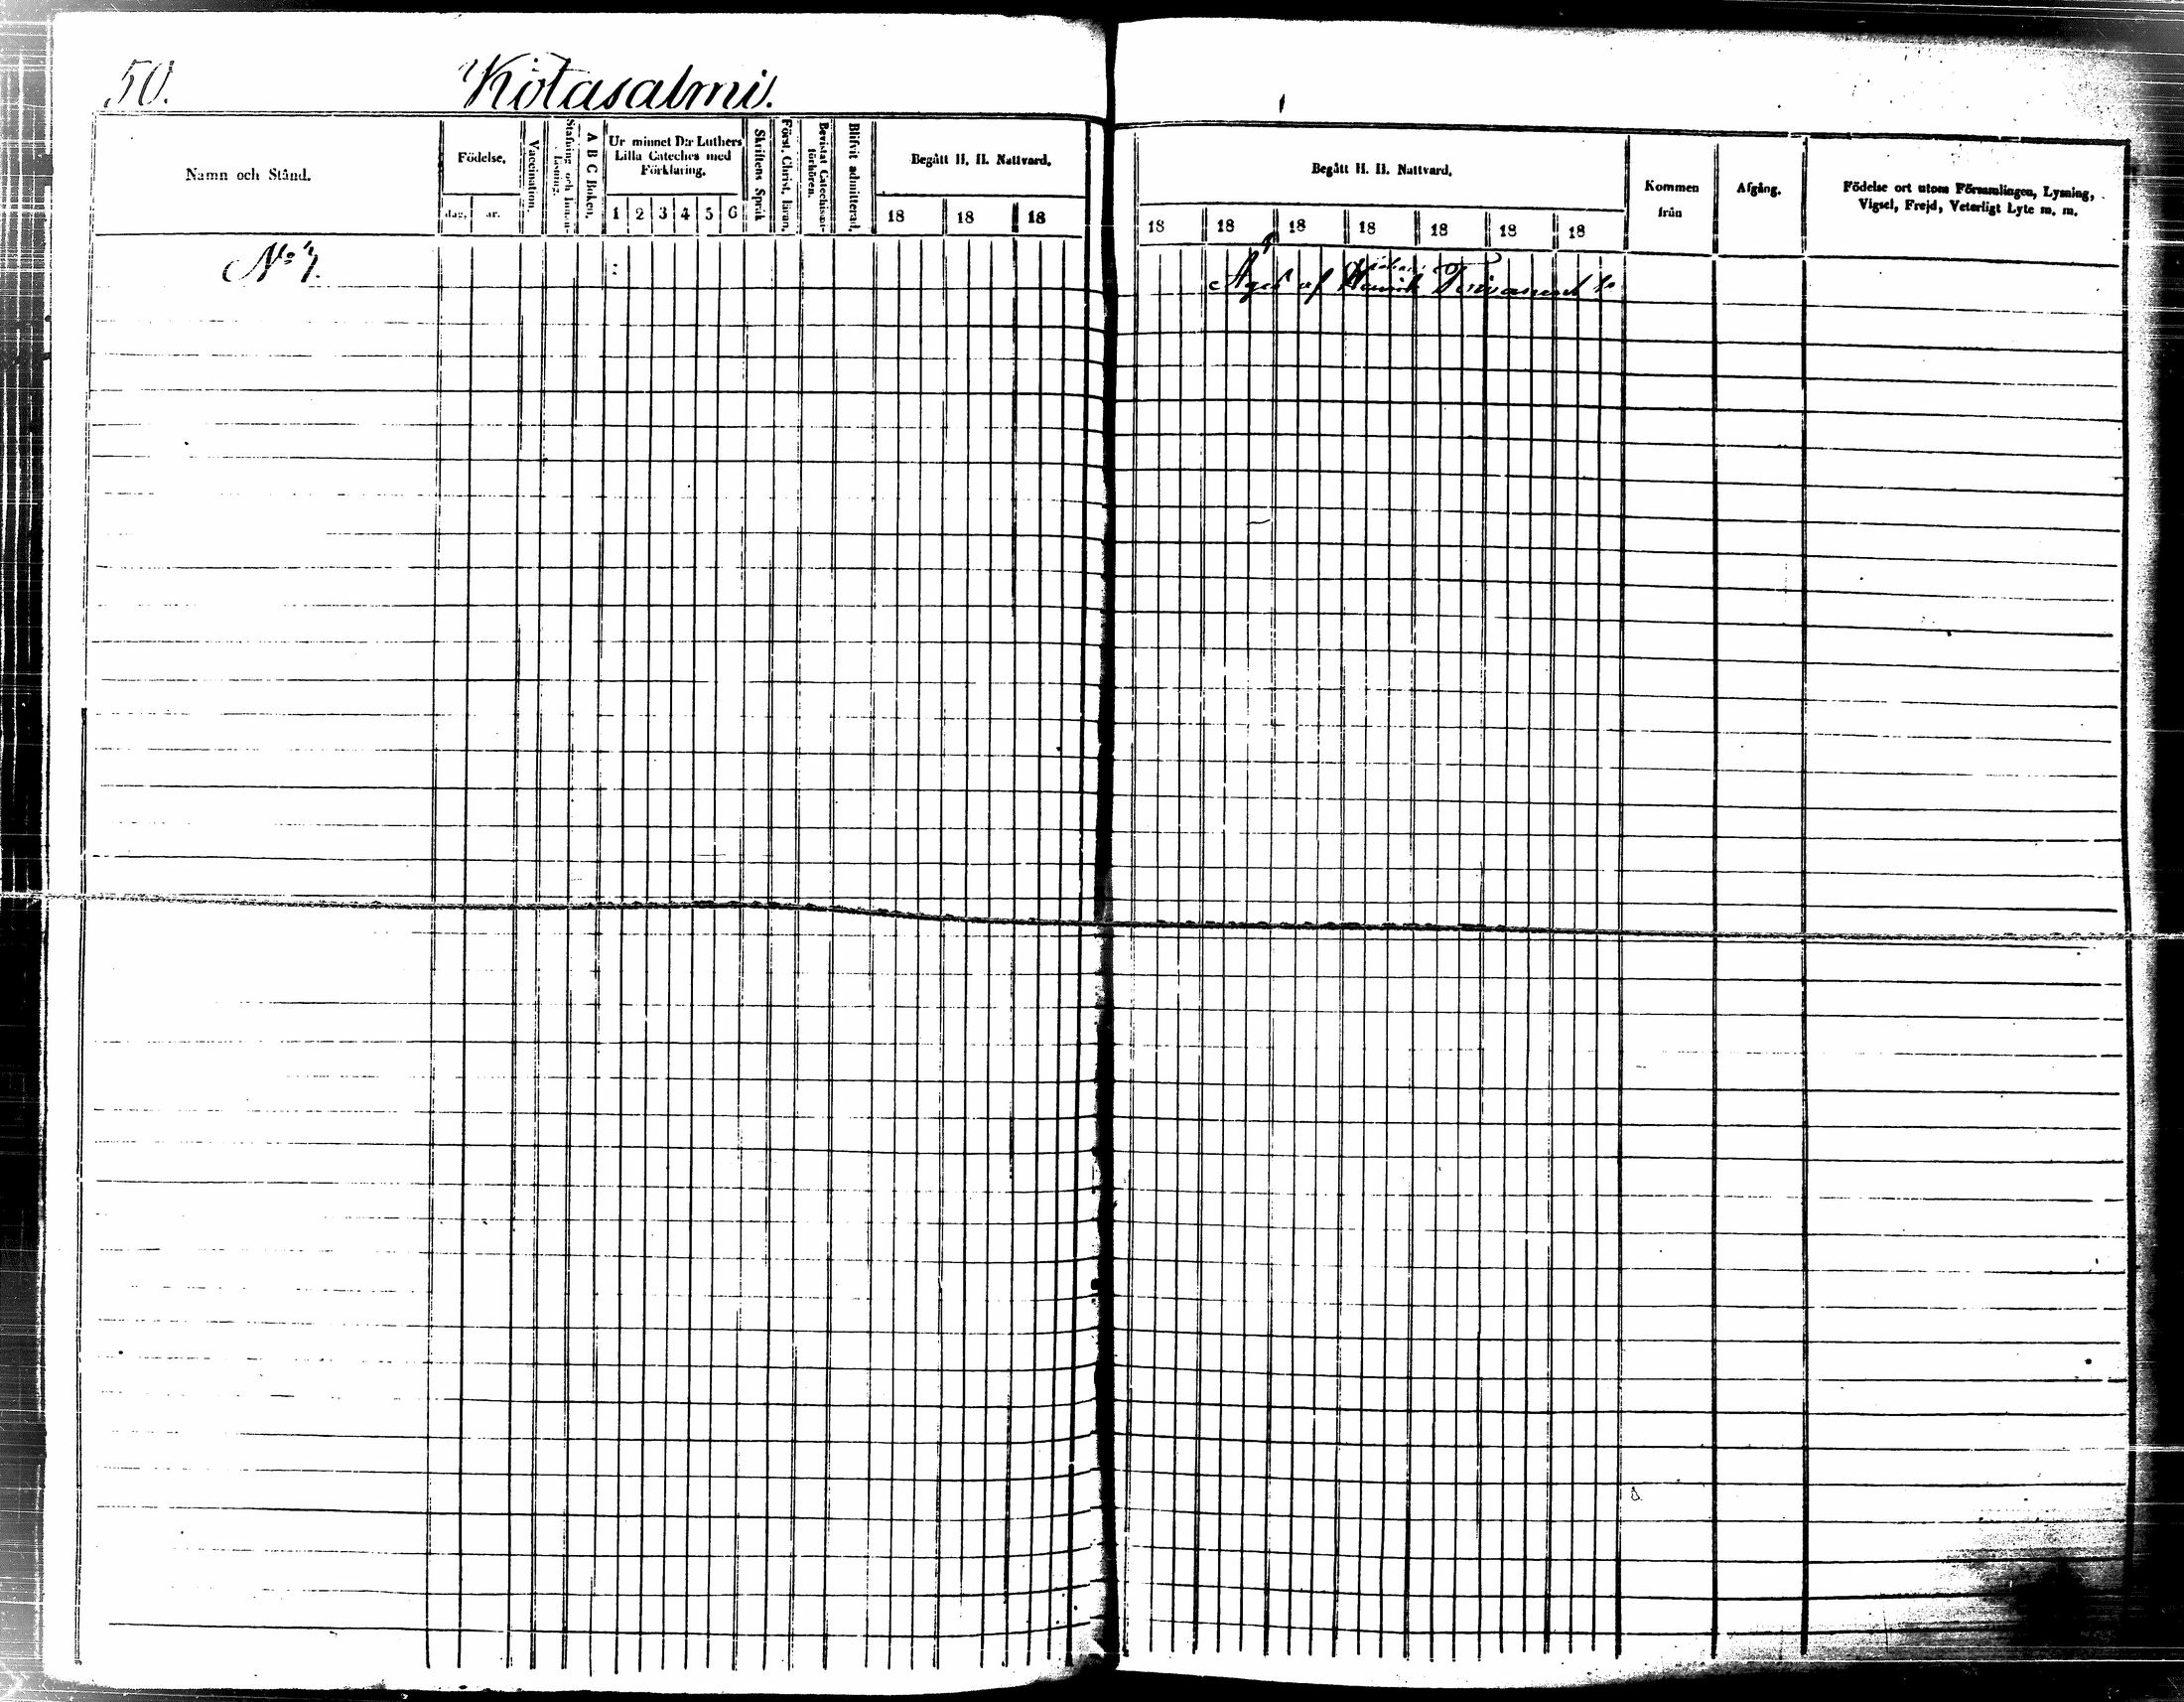 50.
Kotasalmi.
Namn och Stånd.
Födelse.
dag.
år.
Vaccination.
Stafning och Innanläsning.
A B C Boken.
Ur minnet D:r Luthers Lilla Catechcs med Förklaring.
1 2 3 4 5 6
Skriftens Språk
Först. Christ. läran.
Bevistat Catechiseförhören.
Blifvit admitterad.
Begått H. H. Nattvard.
18 18 18
Begått H. H. Nattvard.
18 18 18 18 18 18 18
Kommen från
Afgång.
Födelse ort utom Församlingen, Lysning, Vigsel, Frejd, Veterligt Lyte m. m.
No 7.
Äges af Henrik